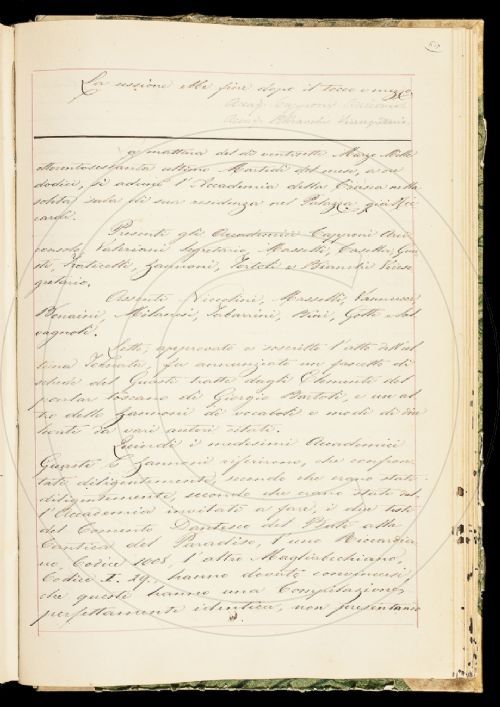 La sessione ebbe fine dopo il tocco e mezzo
Accad. Capponi Arciconsolo
Accad. Bianchi Vicesegretario.
La mattina del dì ventisette Marzo Mille
ottocentosessanta ultimo Martedì del mese, a ore
dodici, si adunò l'Accademia della Crusca nella
solita sala di sua residenza nel Palazzo già Ric-
cardi.
Presenti gli Accademici Capponi Arci-
consolo, Valeriani Segretario, Casella, Gua-
sti, Fraticelli, Zannoni, Tortoli e Bianchi Vicese-
gretario.
Assenti Niccolini, Vannucci
Bonaini, Milanesi, Tabarrini, Bini, Gotti e Sal-
vagnoli.
Letto, approvato e soscritto l'atto dell'ul-
tima Tornata, fu annunziato un fascetto di
schede del Guasti tratte dagli Elementi del
parlar toscano di Giorgio Bartoli, e un al-
tro dello Zannoni di vocaboli e modi di
vari autori citati.
Quindi i medesimi Accademici
Guasti e Zannoni riferirono, che confron-
tati diligentemente, secondo che erano stati
diligentemente, secondo che erano stati dal-
l'Accademia invitati a fare, i due testi
del Comento Dantesco del Buti alla
Cantica del Paradiso, l'uno Riccardia-
no, Codice 1008, l'altro Magliabechiano,
Codice I. 29. hanno dovuto convincersi,
che questi hanno una Compilazione
perfettamente identica, non presentando